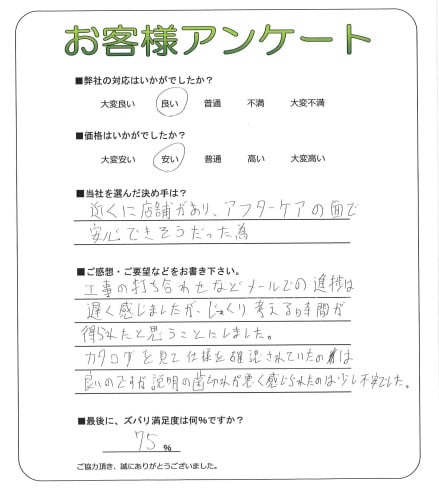 お客様アンケート
■弊社の対応はいかがでしたか?
大変良い 良い 普通 不満 大変不満
■価格はいかがでしたか?
大変安い 安い 普通 高い 大変高い
■当社を選んだ決め手は?
近くに店舗があり、アフターケアの面で
安心できそうだった為
■ご感想・ご要望などをお書き下さい。
工事の打ち合わせなどメールでの進捗は
遅く感じましたが、じっくり考える時間が
得られたと思うことにしました。
カタログを見て仕様を確認されていたのは
良いのですが説明の歯切れが悪く感じられたのは少し不安でした。
■最後に、ズバリ満足度は何%ですか?
75 %
ご協力頂き、誠にありがとうございました。